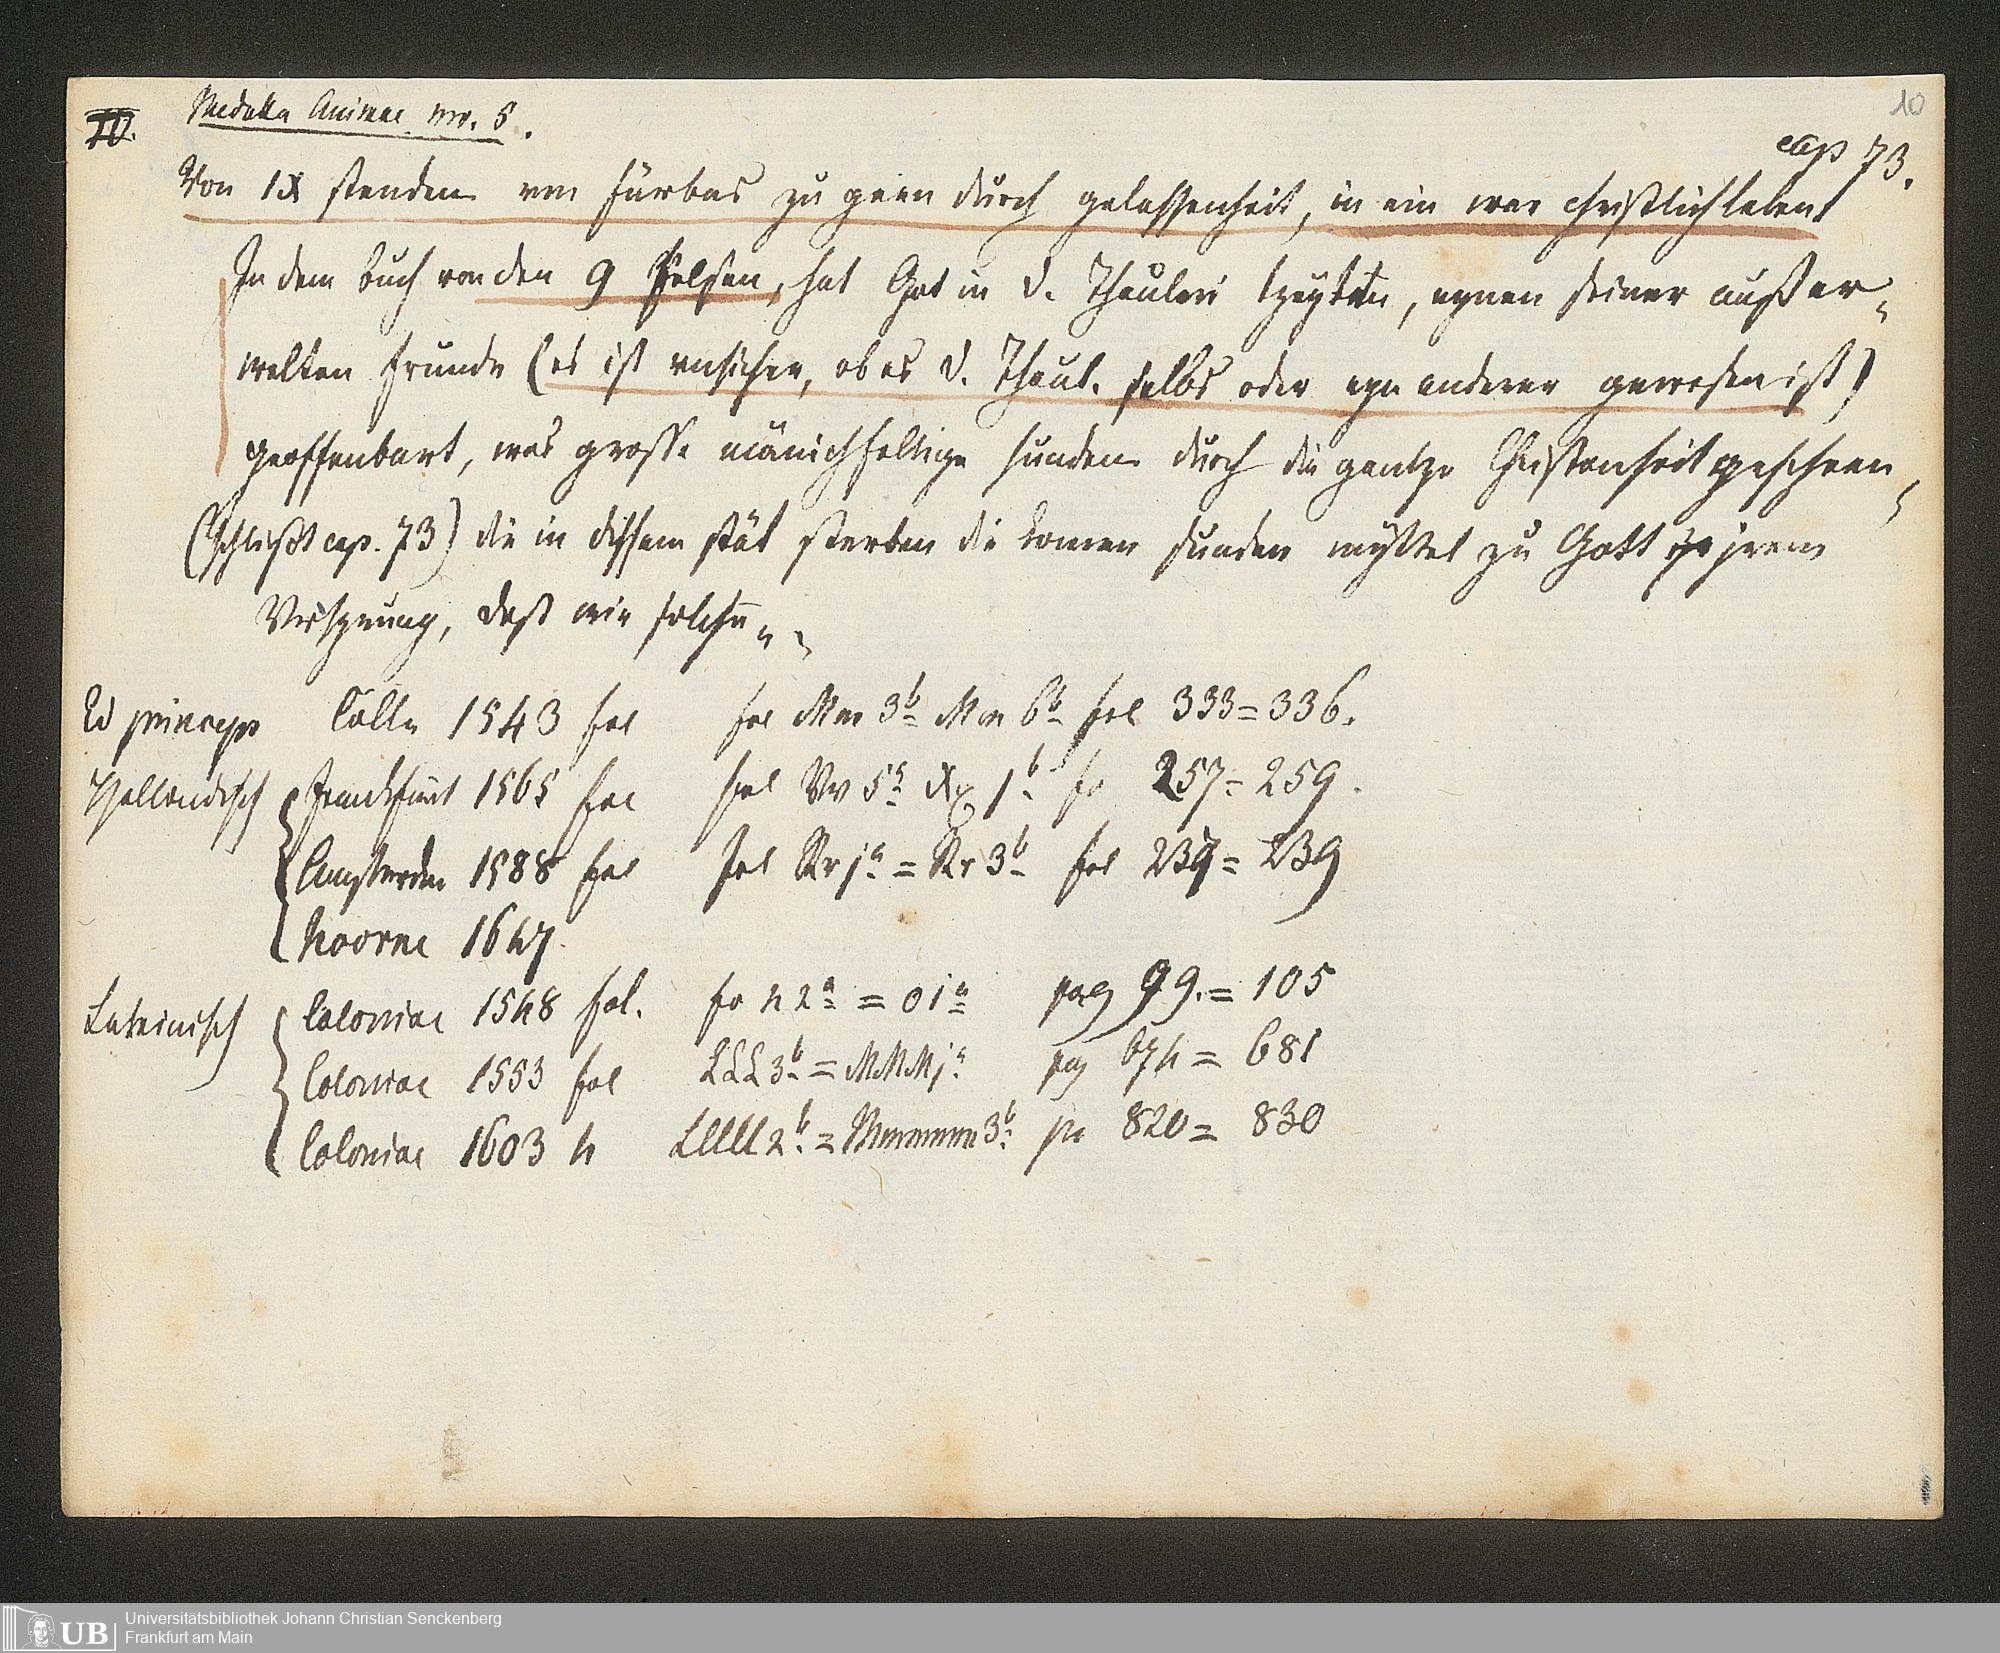 10
IV. Medulla Animae nro. 5.
cap 73.
Von IX stenden von fürbas zu geen durch gelassenheit, in ein war christlich leben
In dem buch von den 9 Felsen, hat Got in D. Thauleri tzeyten, eynen seiner außer-
welten frunde (es ist unsicher, ob es D. Thaul. selbs oder eyn anderer gewesen ist)
geoffenbart, was grosse mänichfeltige sunden durch die gantze Christenheit gescheen,
(Schlußt cap. 73) die in dissem stät sterben die komen sunder myttel zu Gott jrem
Vrsprung, dass wir solchs
Ed princeps Cölln 1543 fol fol Mm 3b Mm 6b fol 333=336.
Hollendisch Franckfurt 1565 fol fol Vv 5a Xx 1b fo 257=259.
Amsterdm 1588 fol fol Rr ja = Rr 3b fol 237=239
Hoorne 1647.
Lateinisch Coloniae 1548 fol. fo n 2a = o ia pag 99.=105
Coloniae 1553 fol LLL 3b = MMM ja pag 674=681
Coloniae 1603 4 Lllll 2b = Mmmmm 3b pa 820=830
UB Universitätsbibliothek Johann Christian Senckenberg
Frankfurt am Main